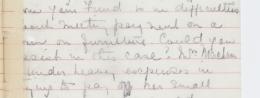 Fund is in difficulties
meeting payment on a
on furniture Could you
assist in this case? Mrs
under heavy expenses in
to pay off her small